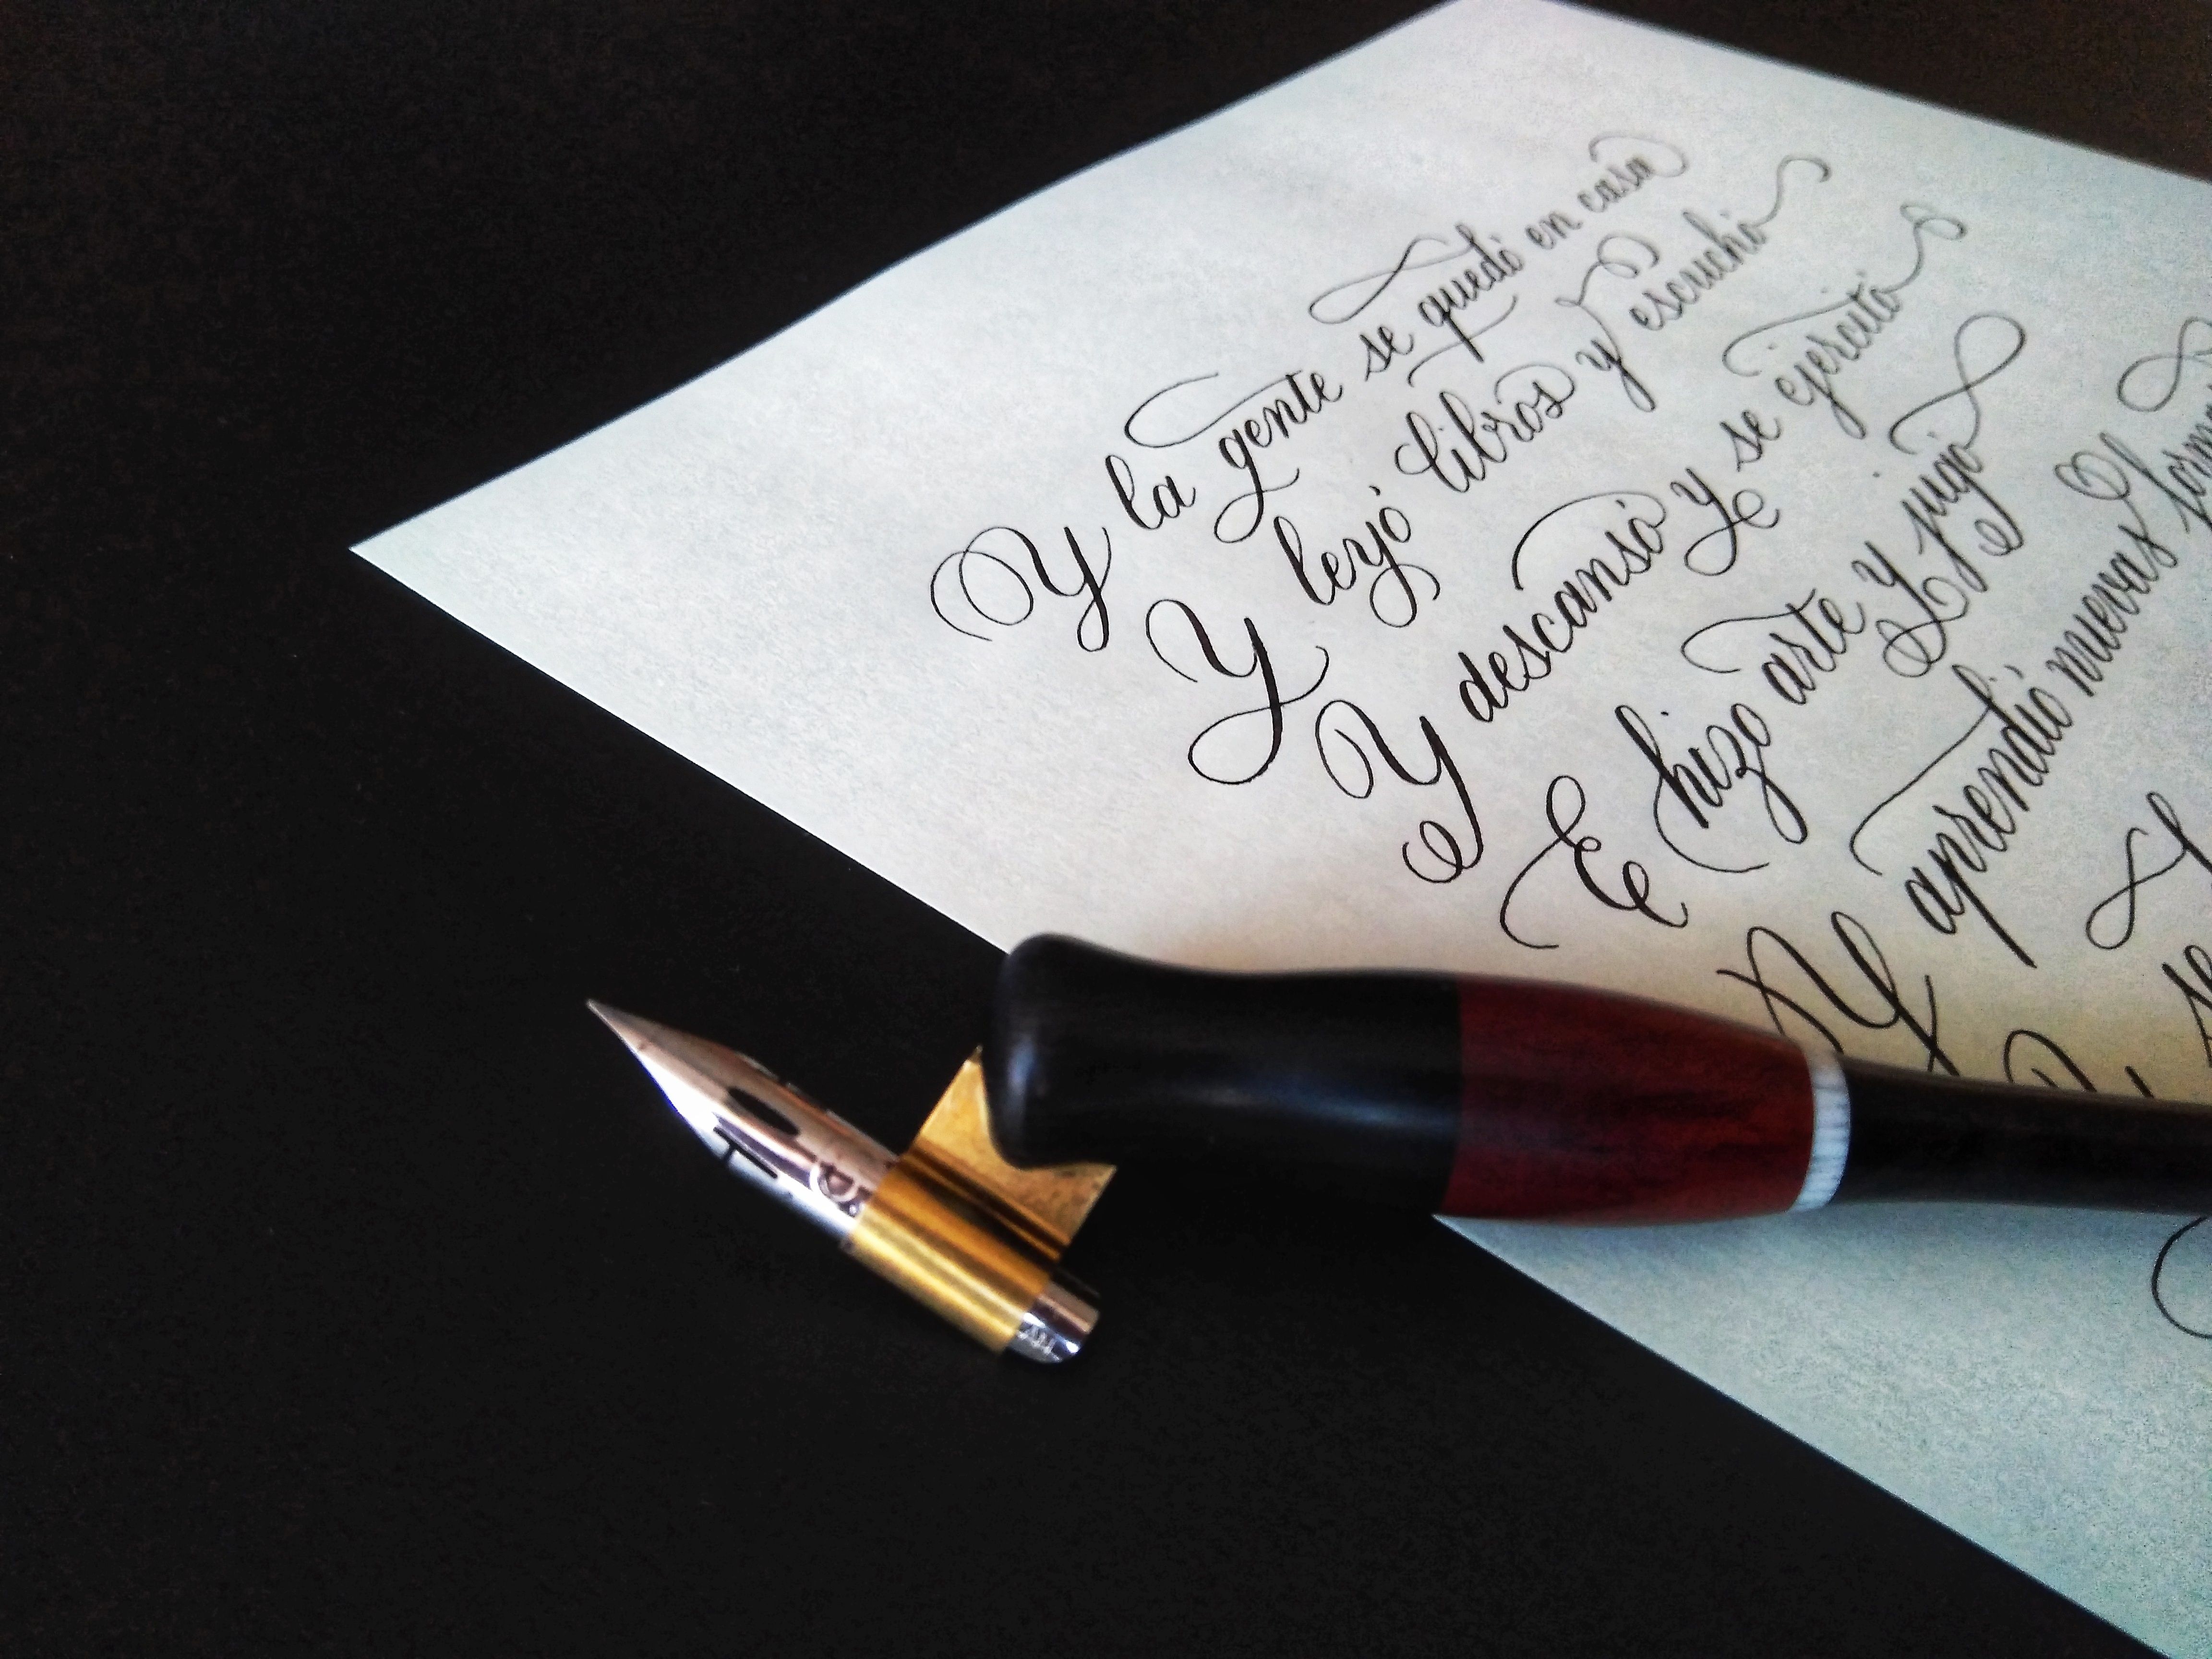 Y la gente se quedó en casa
Y leyó libros y escuchó
Y descansó y se ejercitó
E hizo arte y jugó
Y aprendió nuevas